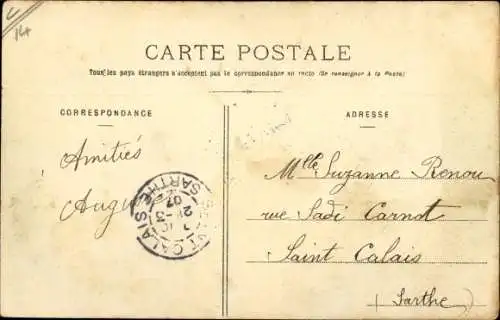 14
CARTE POSTALE
Tous les pays étrangers n'acceptent pas la correspondance au recto (Se renseigner à la Poste)
CORRESPONDANCE
ADRESSE
Amitiés
Mlle Suzanne Renou
rue Sadi Carnot
Saint Calais
(Sarthe)
CALAIS
SARTHE
21 -3
07